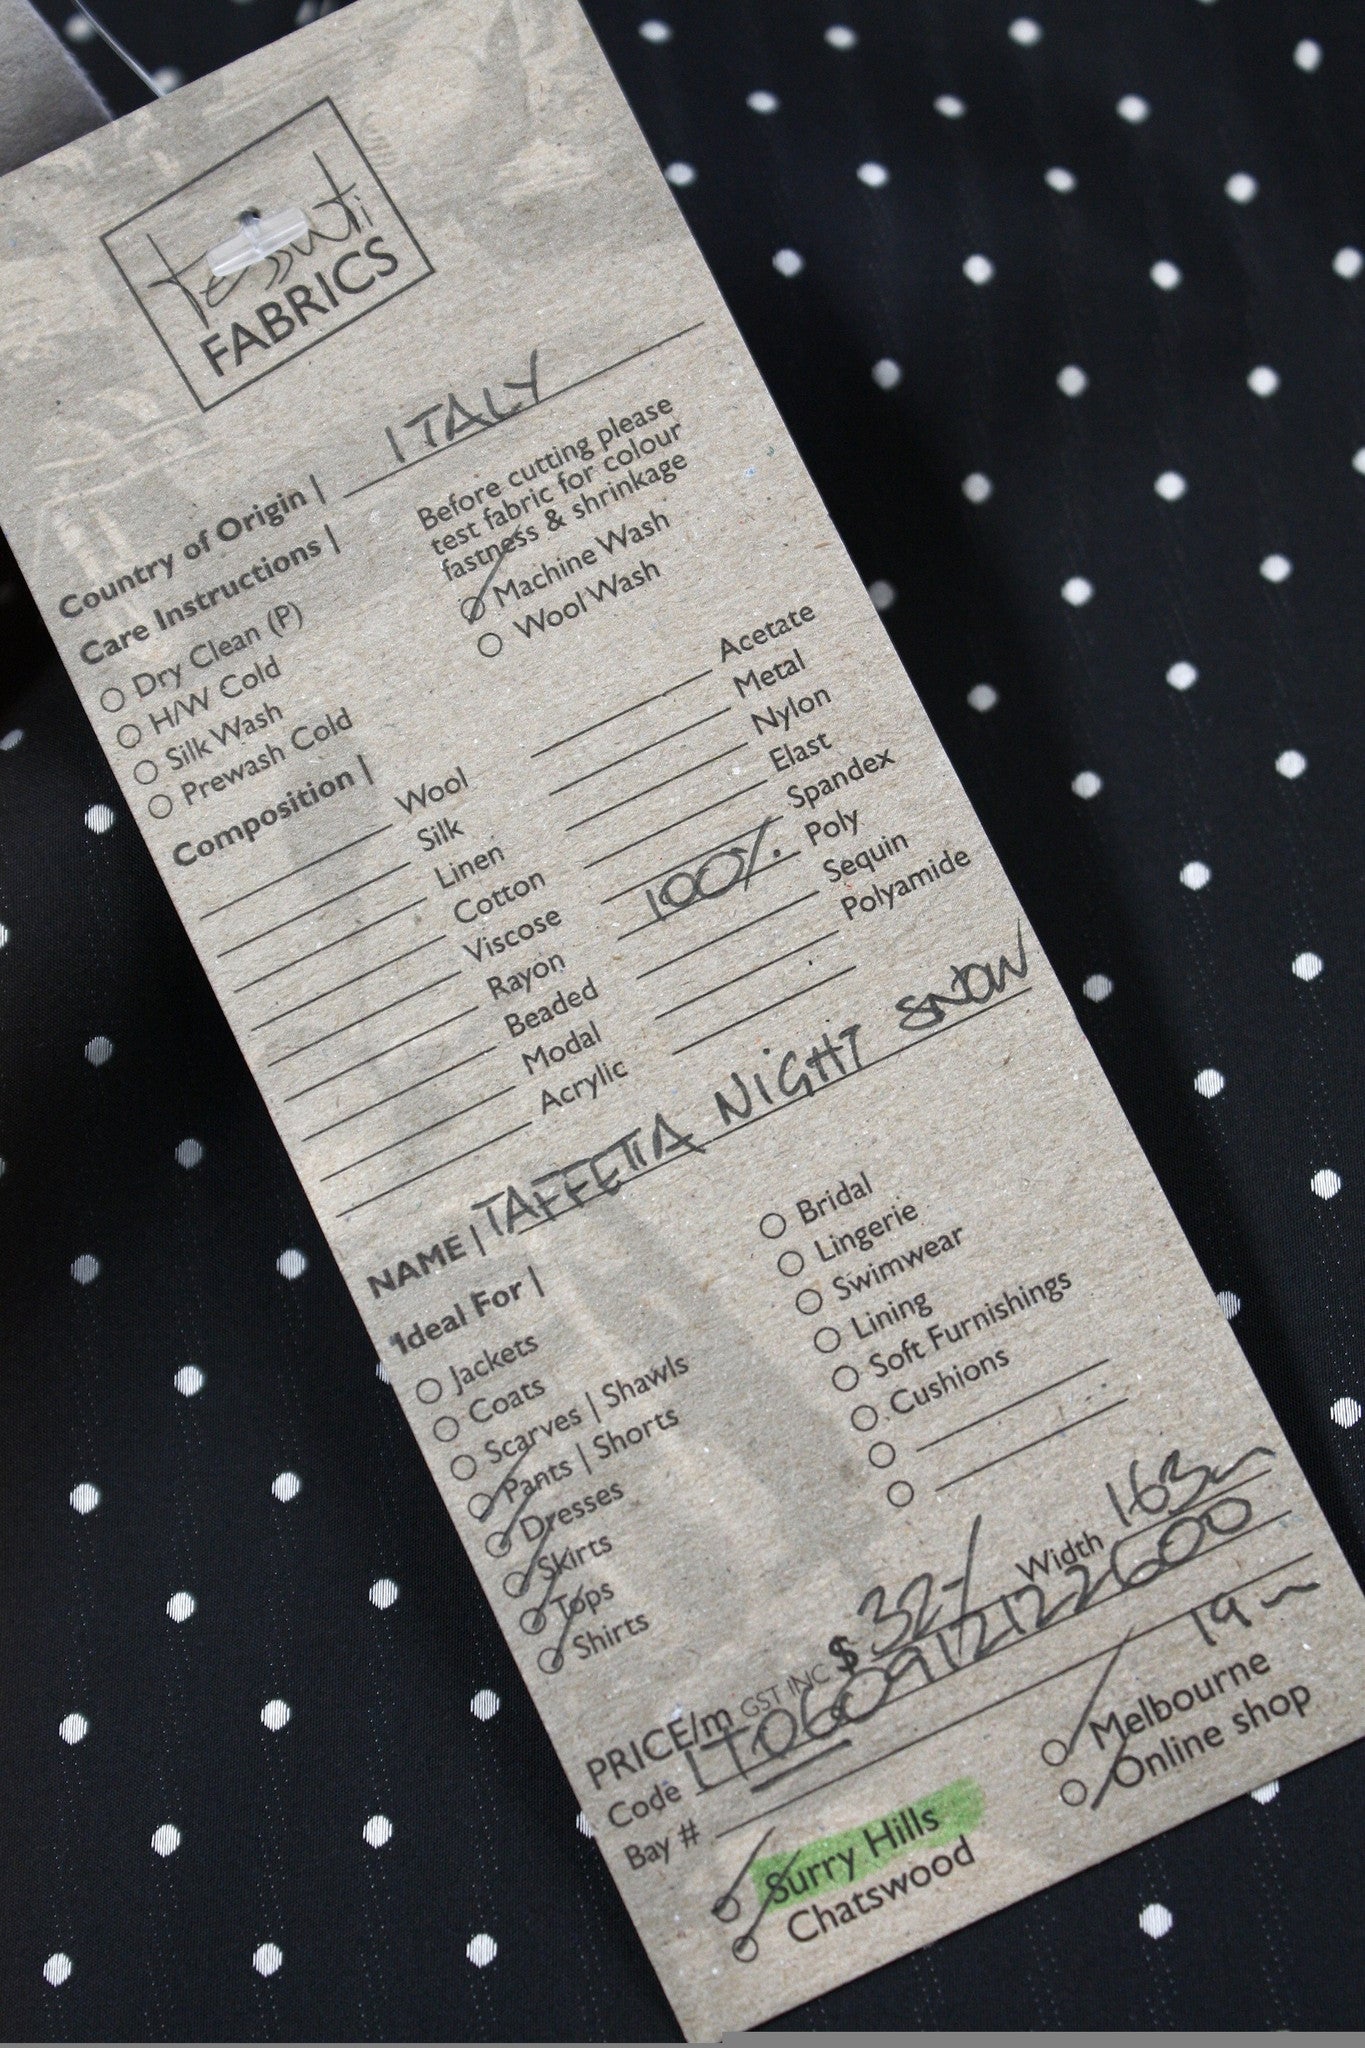 tessuti
FABRICS
Country of Origin | ITALY
Care Instructions |
Before cutting please
test fabric for colour
fastness & shrinkage
Dry Clean (P)
H/W Cold
Silk Wash
Prewash Cold
Machine Wash
Wool Wash
Composition |
Wool
Silk
Linen
Cotton
Viscose
Rayon
Beaded
Modal
Acrylic
Acetate
Metal
Nylon
Elast
Spandex
100% Poly
Sequin
Polyamide
NAME | TAFFETTA NIGHT SNOW
Ideal For |
Jackets
Coats
Scarves | Shawls
Pants | Shorts
Dresses
Skirts
Tops
Shirts
Bridal
Lingerie
Swimwear
Lining
Soft Furnishings
Cushions
PRICE/m GST INC $ 32-/ Width 163
Code LT0609121222600
Bay # 19
Surry Hills
Chatswood
Melbourne
Online shop